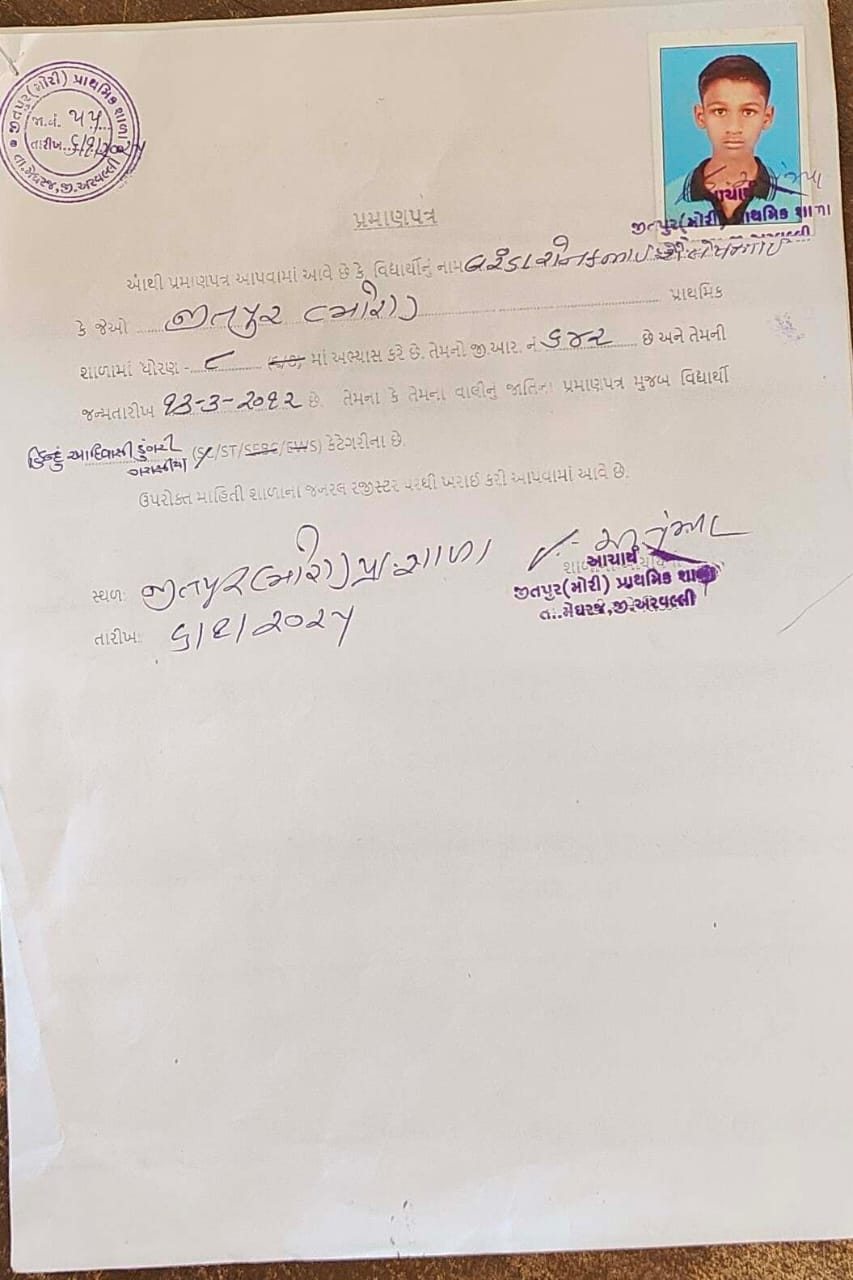 જીતપુર(મોરી) પ્રાથમિક શાળા
જા.નં. ૫૫
તારીખ ૬/૧/૨૦૨૫
તા.મેઘરજ, જી.અરવલ્લી
આચાર્ય
જીતપુર(મોરી) પ્રાથમિક શાળા
પ્રમાણપત્ર
આથી પ્રમાણપત્ર આપવામાં આવે છે કે, વિદ્યાર્થીનું નામ
કે જેઓ જીતપુર (મોરી) પ્રાથમિક
શાળામાં ધોરણ - ૮ માં અભ્યાસ કરે છે. તેમનો જી.આર. નં ૬૪૨ છે અને તેમની
જન્મતારીખ ૧૩-૩-૨૦૧૨ છે. તેમના કે તેમના વાલીનું જાતિના પ્રમાણપત્ર મુજબ વિદ્યાર્થી
હિન્દુ આદિવાસી ડુંગરી
ગરાસીયા (SC/ST/SEBC/EWS) કેટેગરીના છે.
ઉપરોક્ત માહિતી શાળાના જનરલ રજીસ્ટર પરથી ખરાઈ કરી આપવામાં આવે છે.
સ્થળ: જીતપુર (મોરી) પ્રા.શાળા
તારીખ: ૬/૧/૨૦૨૫
આચાર્ય
જીતપુર(મોરી) પ્રાથમિક શાળા
તા..મેઘરજ,જી.અરવલ્લી